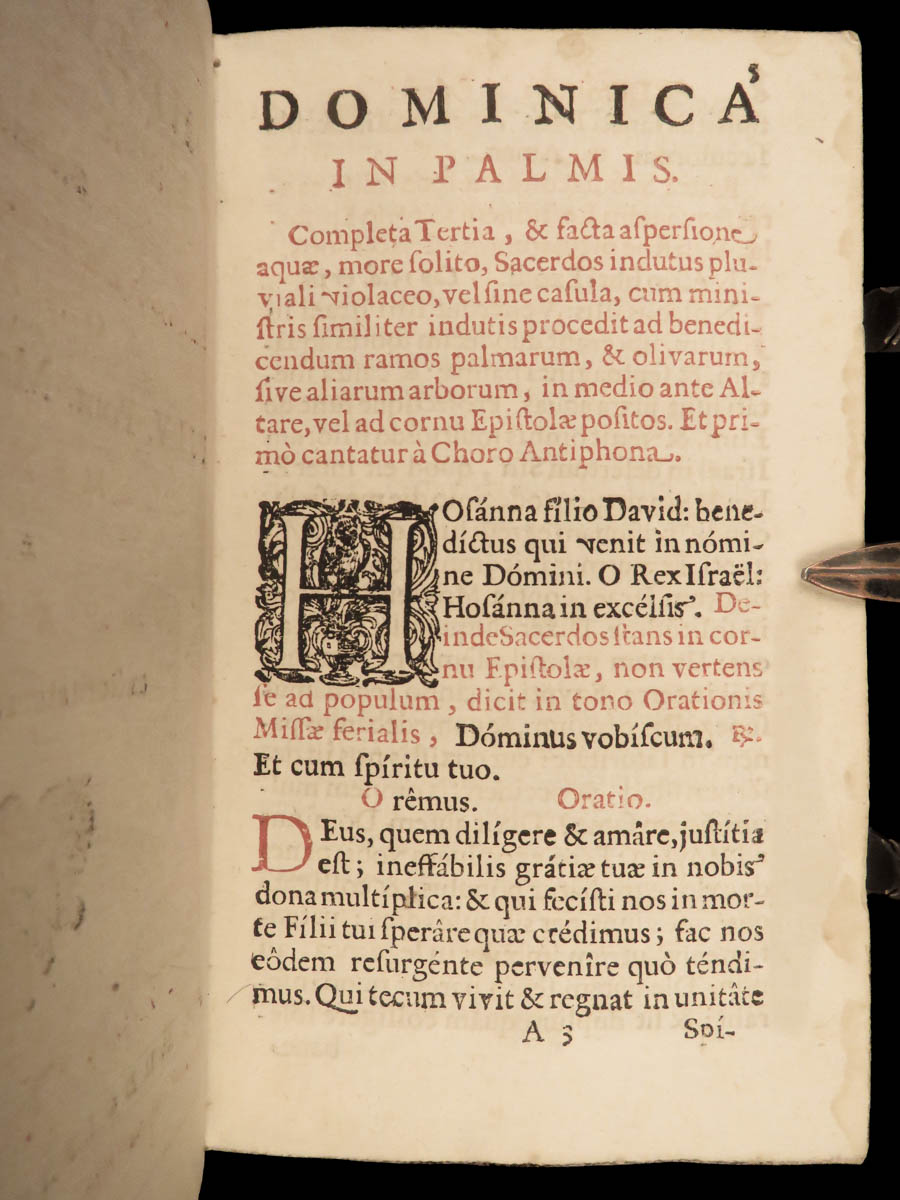 5
DOMINICA
IN PALMIS.
Completa Tertia, & facta aſperſione
aquæ, more ſolito, Sacerdos indutus plu-
viali violaceo, vel ſine caſula, cum mini-
ſtris ſimiliter indutis procedit ad benedi-
cendum ramos palmarum, & olivarum,
ſive aliarum arborum, in medio ante Al-
tare, vel ad cornu Epiſtolæ poſitos. Et pri-
mò cantatur à Choro Antiphona.
HOſánna fílio David: bene-
díctus qui venit in nómi-
ne Dómini. O Rex Iſraël:
Hoſánna in excélſis. De-
inde Sacerdos ſtans in cor-
nu Epiſtolæ, non vertens
ſe ad populum, dicit in tono Orationis
Miſſæ ferialis, Dóminus vobíſcum. ℟.
Et cum ſpíritu tuo.
Orêmus. Oratio.
DEus, quem dilígere & amâre, juſtítia
eſt; ineffábilis grátiæ tuæ in nobis
dona multíplica: & qui fecíſti nos in mor-
te Fílii tui ſperâre quæ crédimus; fac nos
eôdem reſurgénte pervenîre quò téndi-
mus. Qui tecum vivit & regnat in unitâte
A 3 Spí-